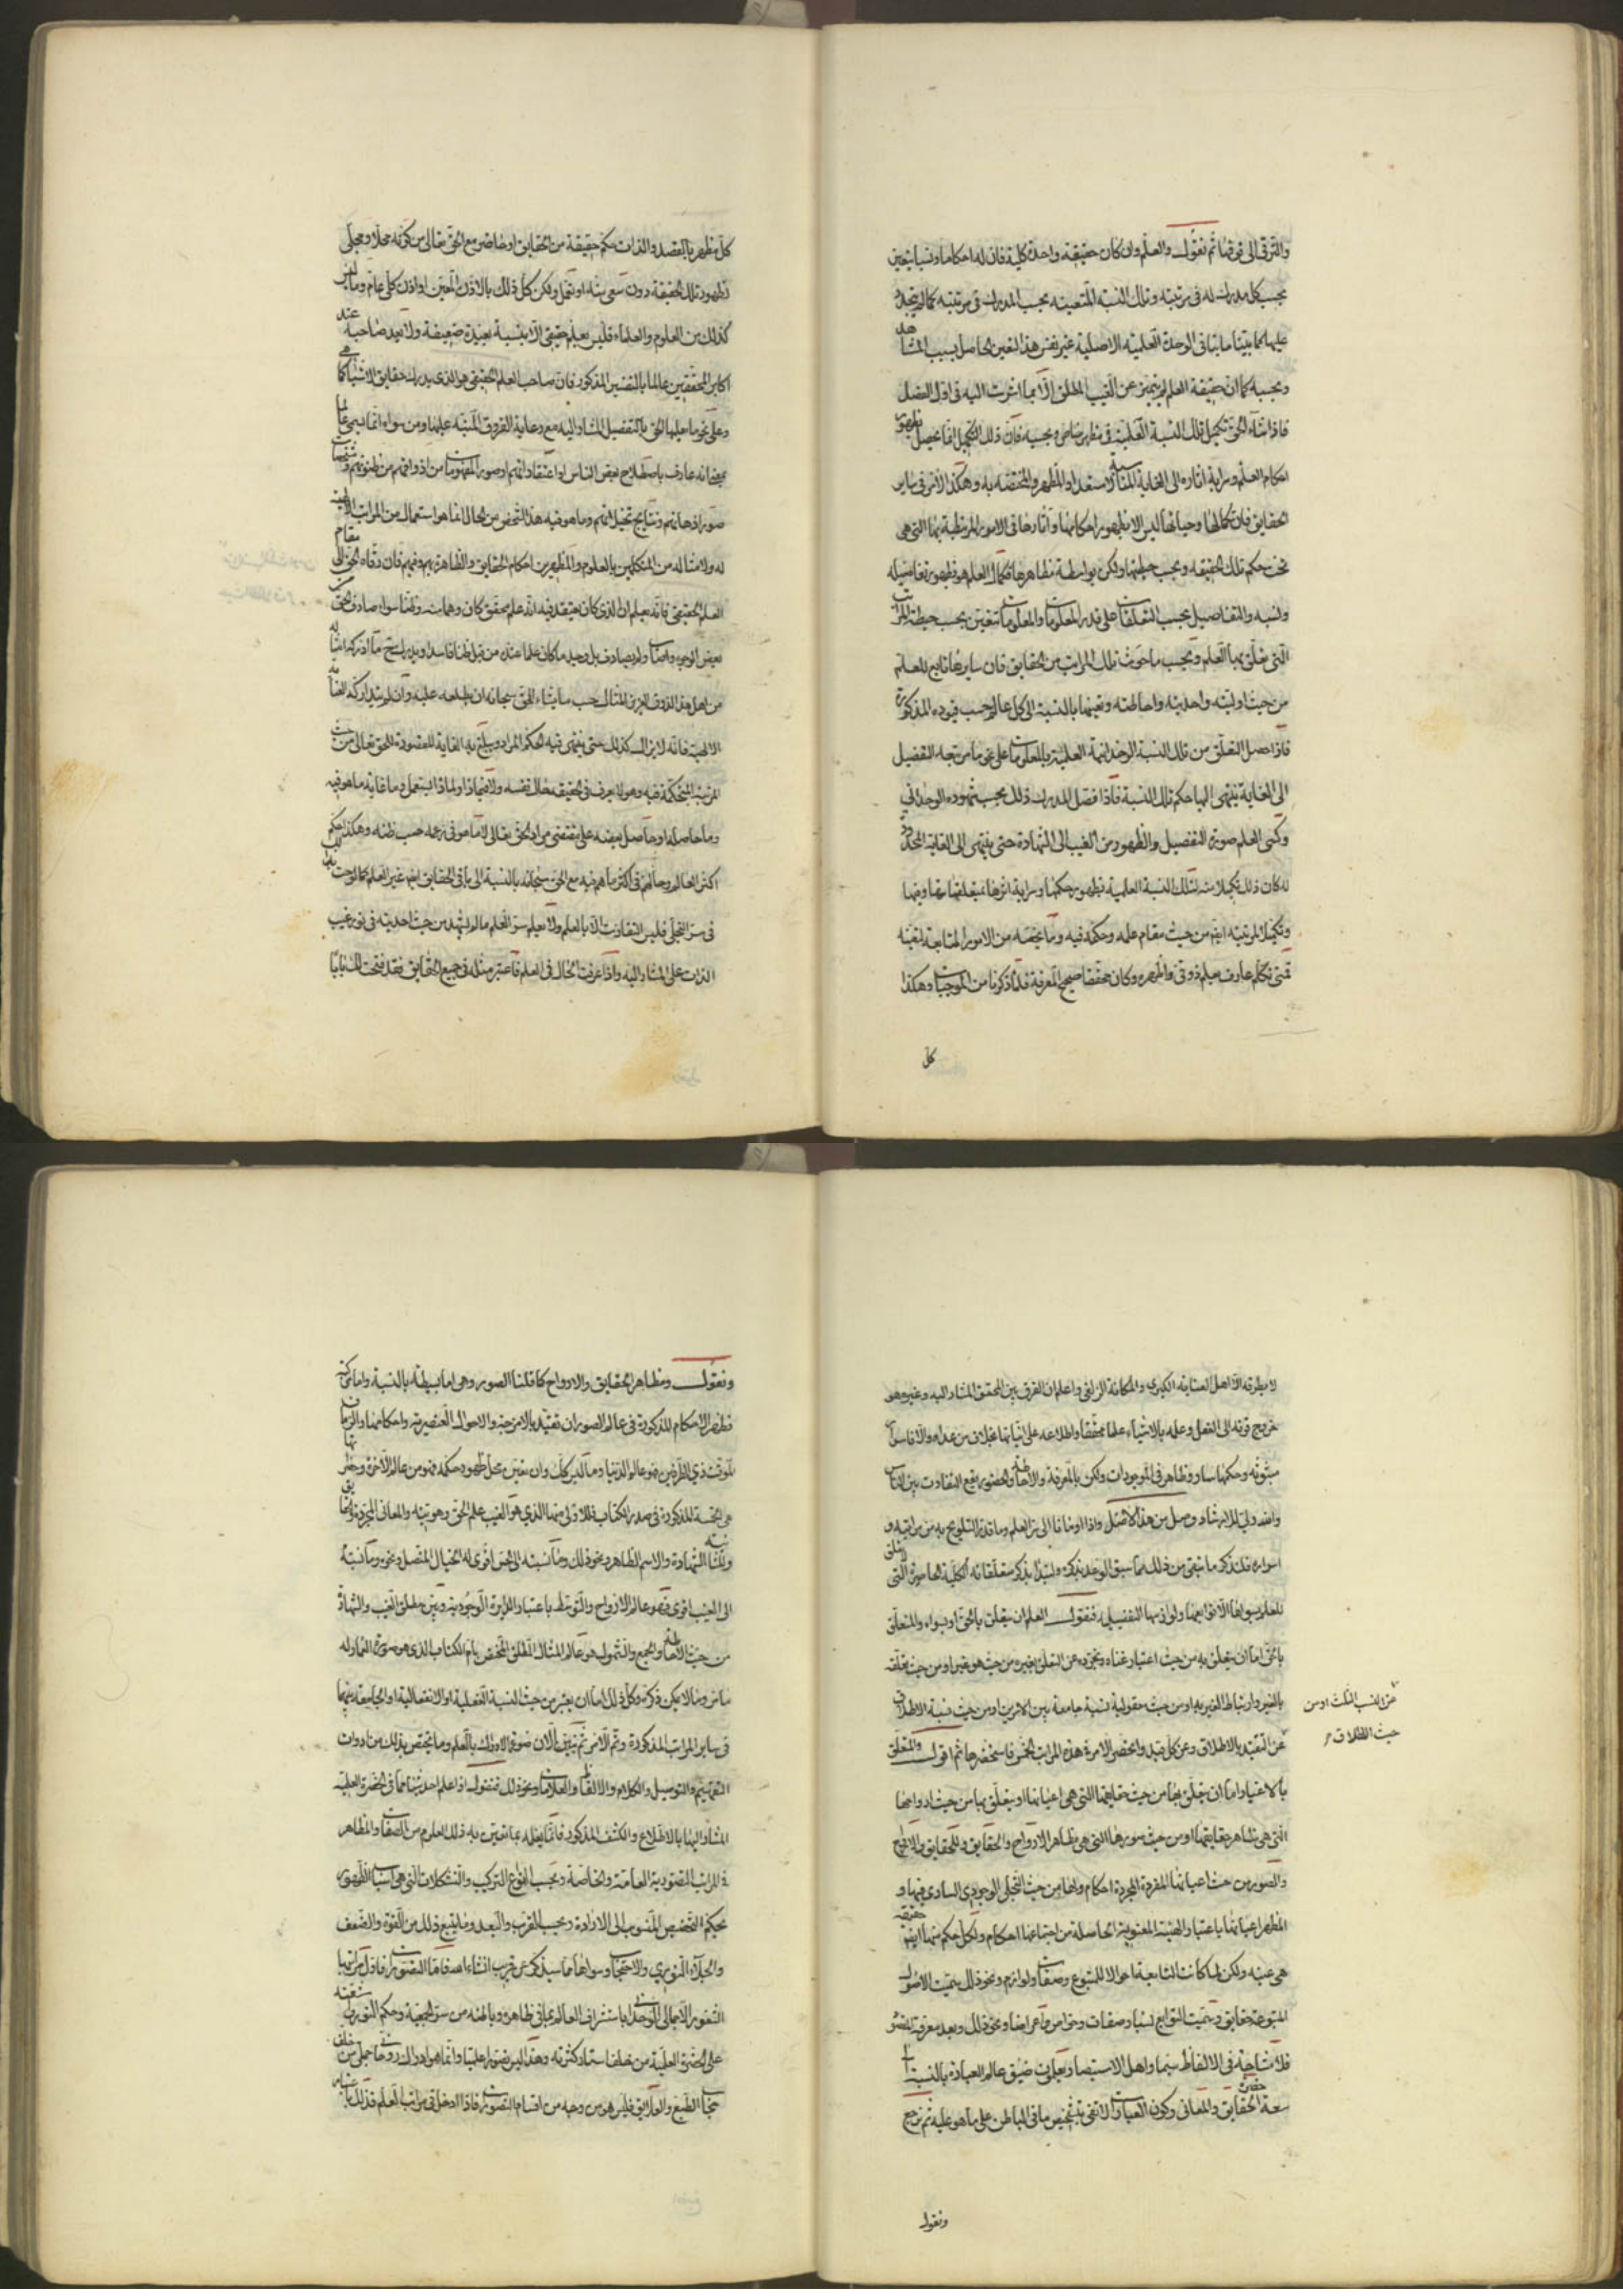 والترقى الى فوقها ثم نقول والعلم وان كان حقيقة واحدة كلية فان له احكاما ونسبا يتعين
بحسب كل مدرك له فى مرتبته وتلك النسبة المتعينة بحسب المدرك فى مرتبته كما لم يتجدد
عليها مما يتنافى الوحدة العلمية الاصلية غير نفس هذا التعين الحاصل بسبب المشاهد
وبحسبه كما ان حقيقة العلم لم يتميز عن الغيب المطلق الا بما اشرت اليه فى اول الفصل
فاذا شاء الحق تكميل تلك النسبة العلمية فى مظهر خاص وبحسبه فان ذلك التكميل انما يحصل بظهور
احكام العلم وسراية اثاره الى الغاية المناسبة لاستعداد المظهر والمختصة به وهكذا الامر فى ساير
الحقايق فان كمالها وحياتها ليس الا بظهور احكامها وآثارها فى الامور المرتبطة بها التى هى
تحت حكم تلك الحقيقة وبحسب حيطتها ولكن بواسطة مظاهرها فكمال العلم هو بظهور تفاصيله
ونسبه والتفاصيل بحسب التعلقات على قدر المعلومات والمعلومات تتعين بحسب حيطة المراتب
التى يتعلق بها العلم وبحسب ما حوت تلك المراتب من الحقايق فان سايرها تابع للعلم
من حيث اوليته واحديته واحاطته وتعينها بالنسبة الى كل عالم بحسب قيوده المذكورة
فاذا حصل التعلق من تلك النسبة الوحدانية العلمية بالمعلومات على نحو ما مر تبعه التفصيل
الى الغاية ينتهى اليها حكم تلك النسبة فاذا فصل المدرك ذلك بحسب شهوده الوحدانى
وكسى العلم صورة التفصيل والظهور من الغيب الى الشهادة حتى ينتهى الى الغاية المحدودة
له كان ذلك تكميلا منه لتلك النسبة العلمية بظهور حكمها وسراية اثرها بتعلقاتها بها وفيها
وتكميلا لمرتبته ايضا من حيث مقام علمه وحكمه فيه وما يخصه من الامور المتابعة لتعينه
فمتى تكلم عارف بعلم ذوقى واظهره وكان محققا صحيح المعرفة فلما ذكرنا من الموجبات وهكذا
كل
كل مظهر بالقصد والذات حكم حقيقة من الحقايق او حاضر مع الحق تعالى من كونه محلا ومجلى
لظهور تلك الحقيقة دون سعى منه او تعمل ولكن كل ذلك بالاذن المعين او اذن كلى عام وما ليس
كذلك من العلوم والعلماء فليس بعلم حقيقى الا بنسبة بعيدة ضعيفة ولا يعد صاحبه عند
اكابر المحققين عالما بالتفسير المذكور فان صاحب العلم الحقيقى هو الذى يدرك حقايق الاشياء كما هى
وعلى نحو ما يعلمها الحق بالتفصيل المشار اليه مع رعاية الفروق المنبه عليها ومن سواه انما يسمى عالما
بمعنى انه عارف باصطلاح بعض الناس او اعتقاداتهم او صور المفهومات من اذواقهم من ظنونهم ومشخصات
صور اذهانهم ونتايج تخيلاتهم وما هو فيه هذا الشخص من الحال انما هو استعمال من المراتب الالهية
له ولامثاله من المتكلمين بالعلوم والمظهرين احكام الحقايق والظاهرة بهم وفيهم فان رقاه الحق الى مقام
العلم الحقيقى فانه يعلم ان الذى كان يعتقد فيه انه علم محقق كان وهما منه وظنا سواء صادف الحق من
بعض الوجوه واصاب او لم يصادف بل وجد ما كان علما عنده من قبل ظنا فاسدا ويدرك اذ ذاك ما ادركه امثاله
من اهل هذا الذوق العزيز المنال حسب ما شاء الحق سبحانه ان يطلعه عليه وان لم تتداركه العناية
الالهية فانه لايزال كذلك حتى ينتهى فيه الحكم المراد ويبلغ به الغاية المقصودة للحق تعالى من حيث
المرتبة المتحكمة فيه وهو لا يعرف فى الحقيقة حال نفسه ولا فيماذا ولماذا استعمل وما غاية ما هو فيه
وما حاصله او حاصل بعضه على مقتضى مراد الحق تعالى لا ما هو فى زعمه حسب ظنه وهكذا حكم
اكثر العالم وحالهم فى اكثر ما هم فيه مع الحق سبحانه بالنسبة الى باقى الحقايق ايضا غير العلم كما لوحت به
فى سر التجلى فليس التفاوت الا بالعلم ولا يعلم سر العلم ما لم يشهد من حيث احديته فى نور غيب
الذات على المشار اليه واذا عرفت الحال فى العلم فاعتبر مثله فى جميع الحقايق فقد فتحت لك بابا
لا يطرقه الا اهل العناية الكبرى والمكانة الزلفى واعلم ان الفرق بين المحقق المشار اليه وغيره هو
خروج قوته الى الفعل وعلمه بالاشياء علما محققا واطلاعه على اثباتها بخلاف من عداه والا فاسرار
مبثوثة وحكمها سار وظاهر فى الموجودات ولكن بالمعرفة والاحاطة والحضور يقع التفاوت بين الناس
والله ولى الارشاد وصل من هذا الاصل واذا اومأنا الى سر العلم وما قدر التلويح به من مراتبه و
اسراره فلنذكر ما تبقى من ذلك مما سبق الوعد بذكره ولنبدأ بذكر متعلقاته الكلية الحاصرة التى
للعلم سواها الا توابعها ولوازمها التفصيلية فنقول العلم ان يتعلق بالحق او بسواه والمتعلق
بالحق اما ان يتعلق به من حيث اعتبار غناه وتجرده عن التعلق بغيره من حيث هو غير او من حيث تعلقه
بالغير وارتباط الغير به او من حيث معقولية نسبة جامعة بين الامرين او من حيث نسبة الاطلاق
عن النسب الثلث او من
حيث الاطلاق
عن التقييد بالاطلاق وعن كل قيد وانحصر الامر فى هذه المراتب الخمس فاستحضرها ثم اقول والمتعلق
بالاغيار اما ان يتعلق بها من حيث حقايقها التى هى اعيانها او يتعلق بها من حيث ارواحها
التى هى مظاهر حقايقها او من حيث صورها التى هى مظاهر الارواح والحقايق وللحقايق والارواح
والصور من حيث اعيانها المفردة المجردة احكام ولها من حيث التجلى الوجودى السارى فيها و
المظهر اعيانها باعتبار الهيئة المعنوية الحاصلة من اجتماعها احكام ولكل حكم منها ايضا حقيقة
هى عينه ولكن لما كانت التابعة احوالا للمتبوع وصفات ولوازم ونحو ذلك سميت الاصول
المتبوعة حقايق وسميت التوابع نسبا وصفات وخواص واعراضا ونحو ذلك وبعد معرفة المقصود
فلا مشاحة فى الالفاظ سيما واهل الاستبصار يعلمون ضيق عالم العبارة بالنسبة الى
سعة حضرة الحقايق والمعانى وكون العبارات لا تفى بتشخيص ما فى الباطن على ما هو عليه ثم نرجع
ونقول
ونقول ومظاهر الحقايق والارواح كما قلنا الصور وهى اما بسيطة بالنسبة واما مركبة
فظهور الاحكام المذكورة فى عالم الصور ان تقيد بالامزجة والاحوال العنصرية واحكامها والزمان
الموقت ذى الطرفين فهو عالم الدنيا وما ليس كذلك وان تعين محل ظهور حكمه فهو من عالم الآخرة وحضراتها
هى الخمسة المذكورة فى صدر الكتاب فللاولى منها الذى هو الغيب علم الحق وهويته والمعانى المجردة والحقايق
وللثانية الشهادة والاسم الظاهر ونحو ذلك وما نسبته الى الحس اقوى له الخيال المتصل ونحوه وما نسبته
الى الغيب اقوى فهو عالم الارواح والمتوسط باعتبار الدايرة الوجودية وبين مطلق الغيب والشهادة
من حيث الاحاطة والجمع والشمول هو عالم المثال المطلق المختص بام الكتاب الذى هو صورة العماء وله
ما مر وما لا يمكن ذكره وكل ذلك اما ان يعتبر من حيث النسبة الفعلية او الانفعالية او الجامعة بينهما
فى ساير المراتب المذكورة وتم الامر ثم نبين الآن صورة الادراك بالعلم وما يختص بذلك من ادوات
التفهيم والتوصيل والكلام والالفاظ والعلامات ونحو ذلك فنقول اذا علم احد شيئا مما فى الحضرة العلمية
المشار اليها بالاطلاع والكشف المذكور فانما يعلمه بما تعين به ذلك المعلوم من الصفات والمظاهر
فى المراتب التصورية العامة والخاصة وبحسب انواع التركيب والتشكلات التى هى اسباب الظهور
بحكم التخصيص المنسوب الى الارادة وبحسب القرب والبعد وما يتبع ذلك من القوة والضعف
والجلاء النورى والاحتجاب وسواها مما سيذكر عن قريب ان شاء الله فاما التصورات فاول مراتبها
الشعور الاجمالى الوحدانى باستشراف العالم بما فى ظاهره وباطنه من سر الجمعية وحكم النور من شعشعته
على الحضرة العلمية من خلف استار كثرته وهذا ليس تصورا علميا وانما هو ادراك روحانى جملى من خلف
حجاب الطبع والعلايق فليس هو من وجه من اقسام التصورات فاذا ادخل فى مراتب العلم فذلك باعتبار